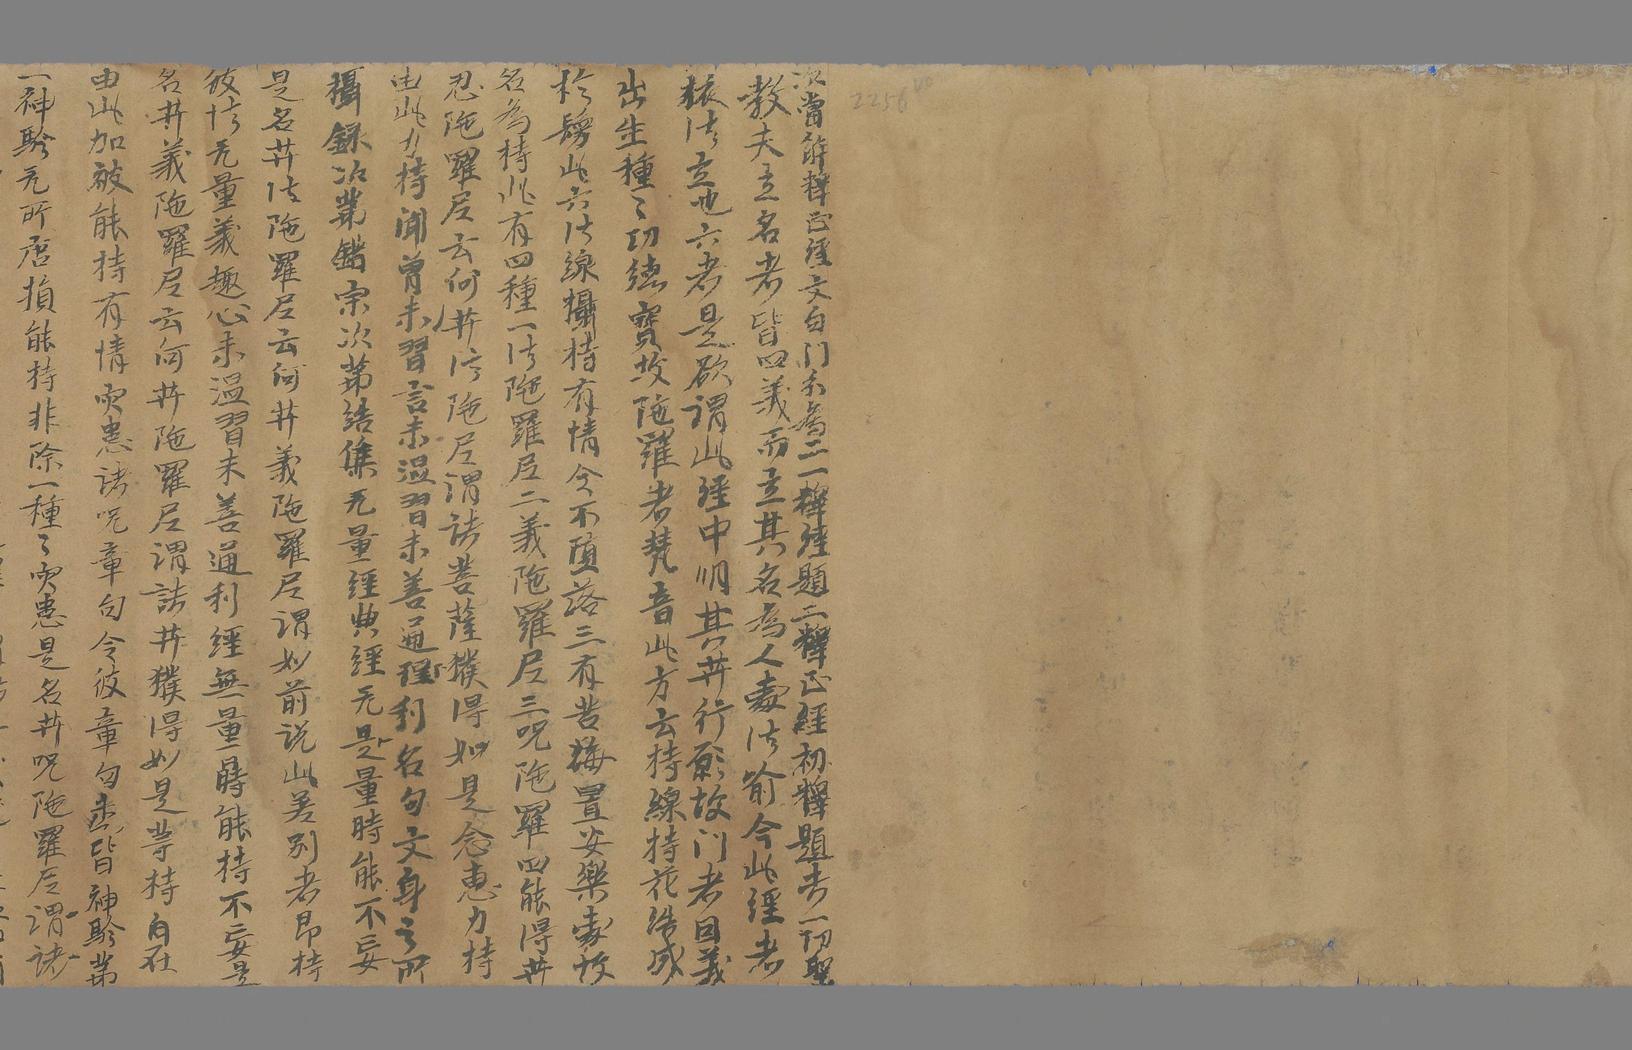 次當解釋正經文自門分為二一釋經題二釋正經初釋題者一切聖
教夫立名者皆四義而立其名為人處法喻今此經者
依法立也六者是欲謂此經中明其菩薩行願故門者因義
出生種々功德寶故陀羅者梵音此方云持線持花結成
於鬘此六法線攝持有情令不墮落三有苦海置安樂處故
名為持此有四種一法陀羅尼二義陀羅尼三呪陀羅四能得菩薩
忍陀羅尼云何菩薩法陀尼謂諸菩薩獲得如是念惠力持
由此力持聞曾未習言未溫習未善通利名句文身之所
攝錄次第錯宗次第結集无量經典經无量時能不妄
是名菩薩法陀羅尼云何菩薩義陀羅尼謂如前說此差別者即持
彼法无量義趣心未溫習未善通利經無量時能持不妄是
名菩薩義陀羅尼云何菩薩陀羅尼謂諸菩薩獲得如是等持自在
由此加被能持有情灾患諸呪章句令彼章句悉皆神驗第
一神驗无所唐損能持非除一種々灾患是名菩薩呪陀羅尼謂諸
2256